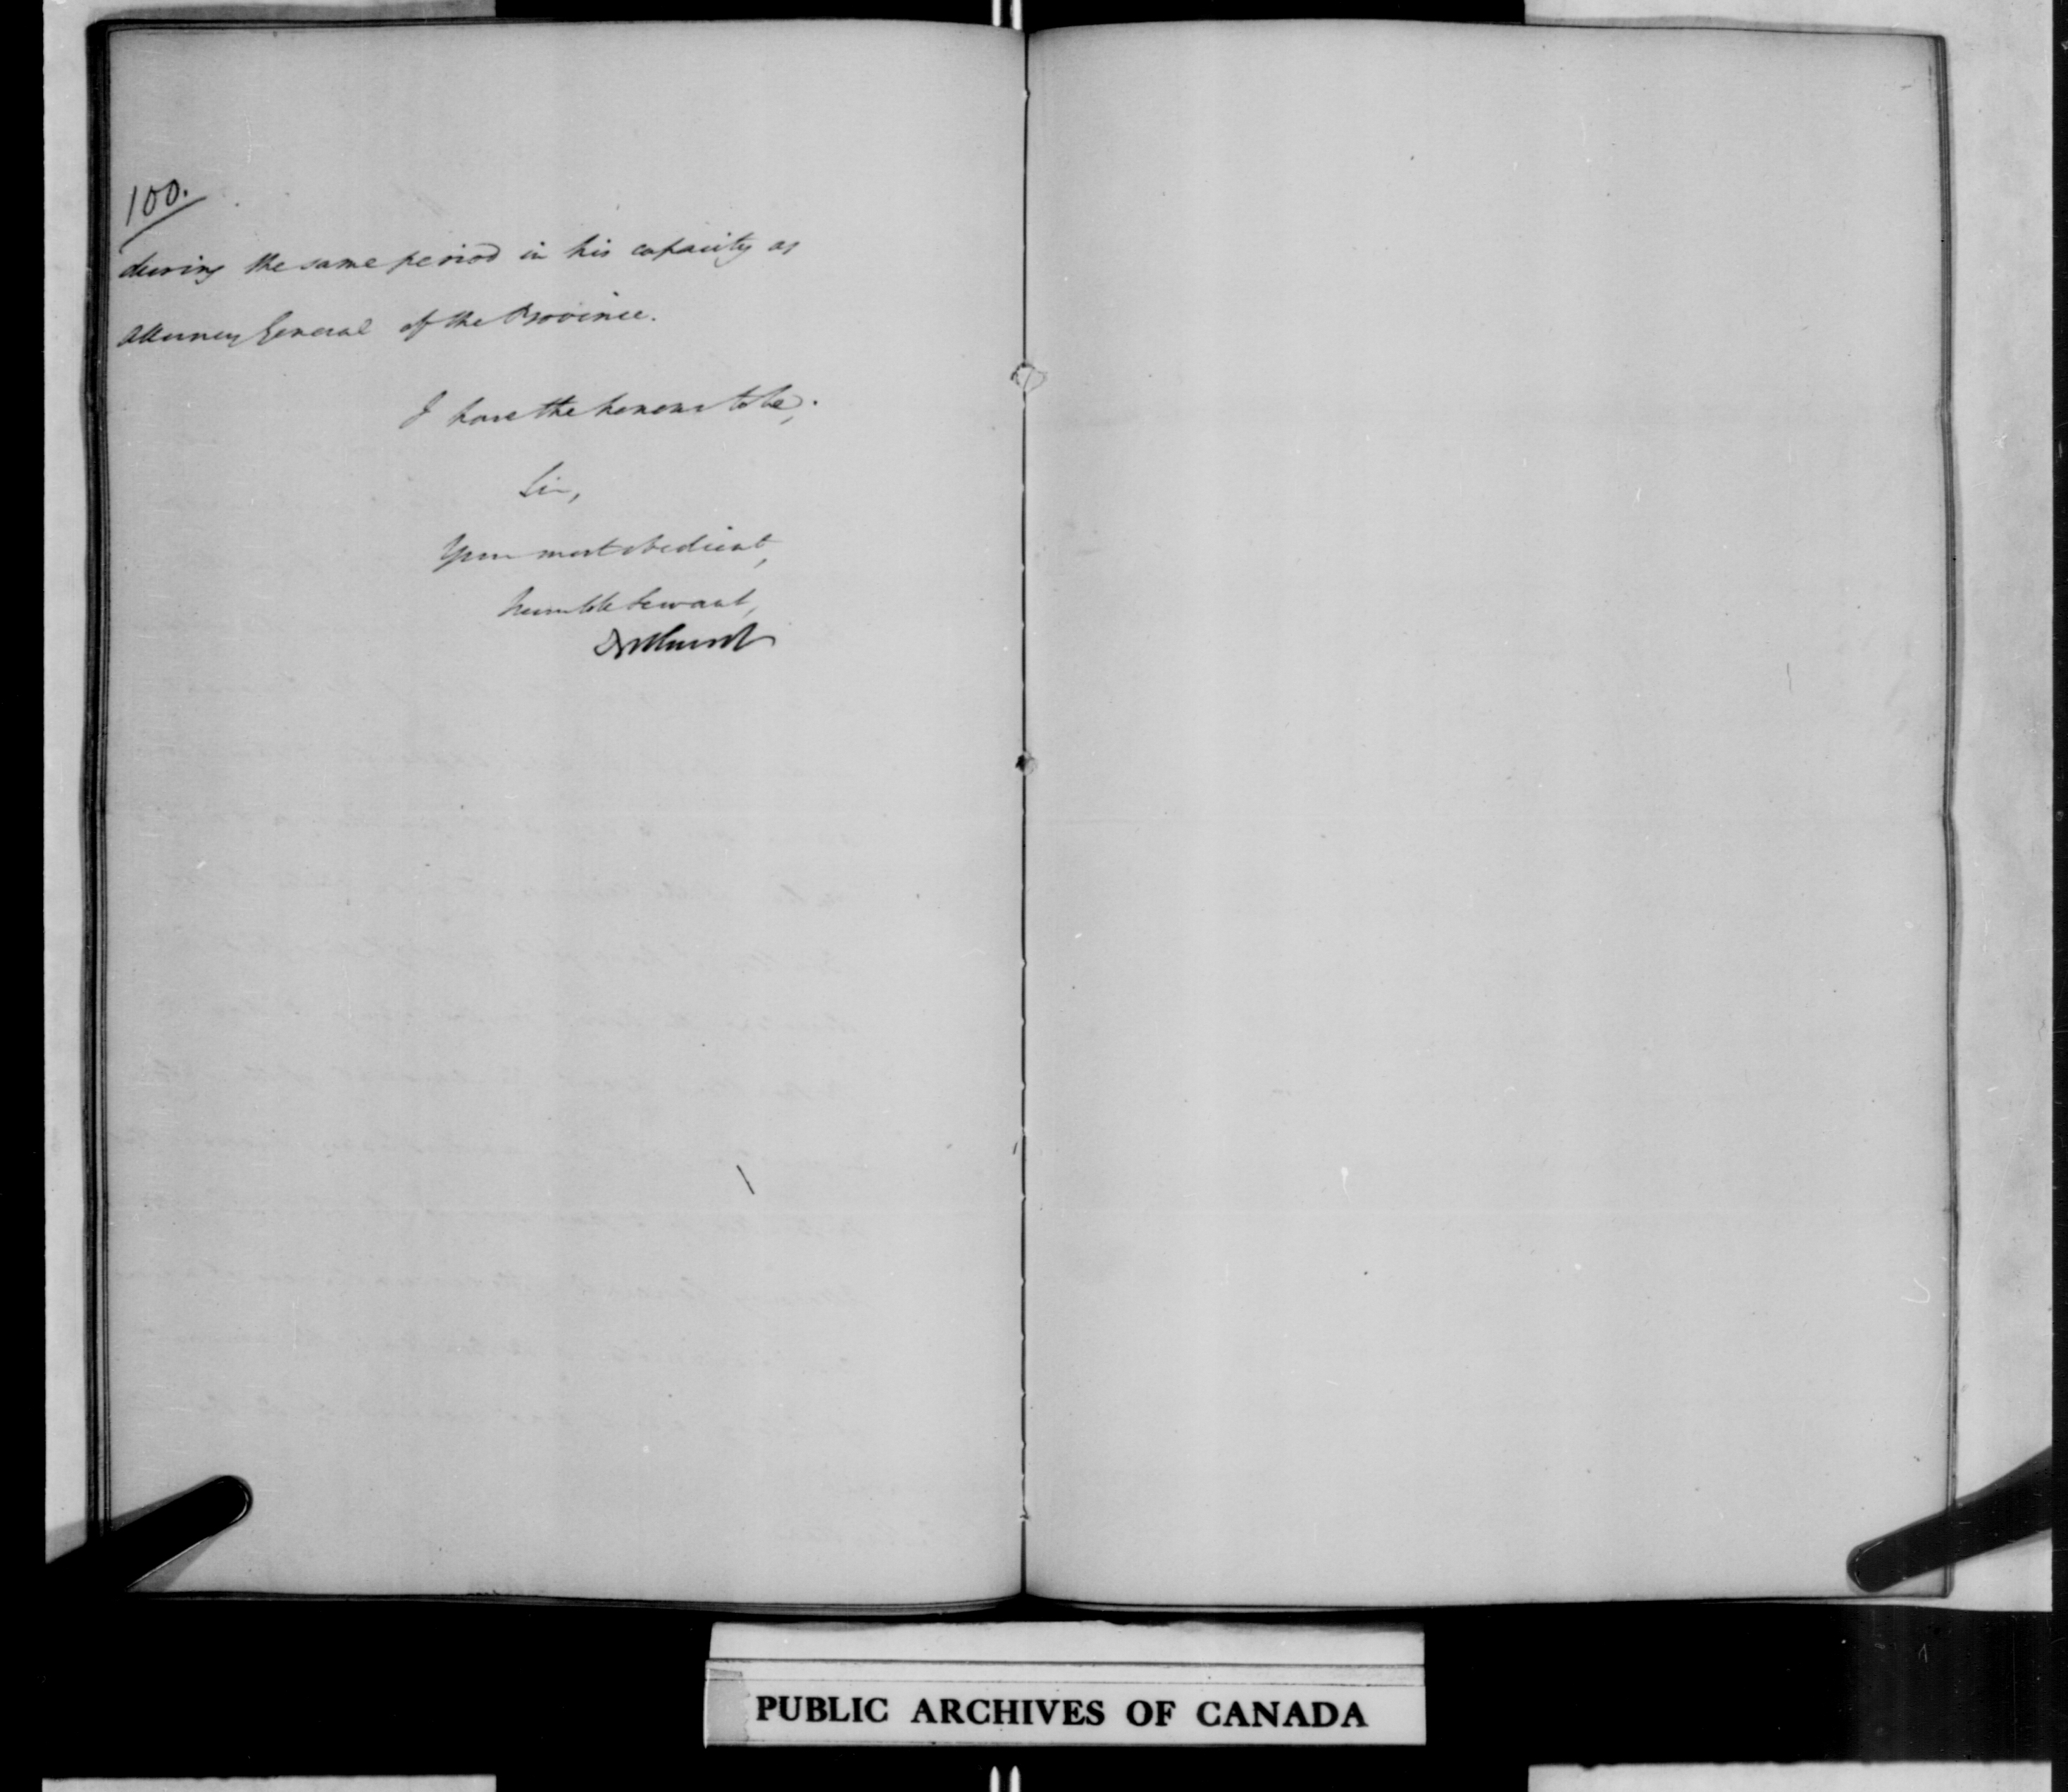 100.
during the same period in his capacity as
Attorney General of the Province.
I have the honour to be,
Sir,
Your most obedient,
humble Servant,
Bathurst
PUBLIC ARCHIVES OF CANADA